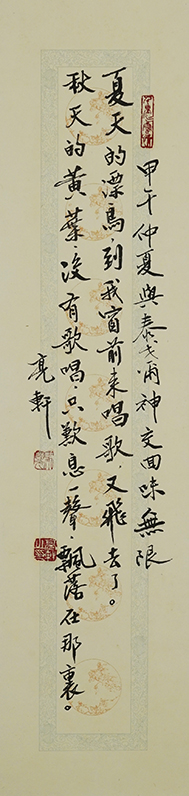 甲午仲夏與泰戈爾神交回味無限
夏天的漂鳥,到我窗前來唱歌,又飛去了。
秋天的黃葉,沒有歌唱,只歎息聲,飄落在那裏。
亮軒